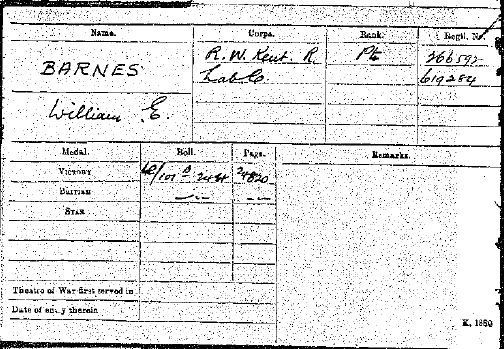 Name. Corps. Rank. Regtl. No.
BARNES R. W. Kent. R. Pte 266592
William E. Lab C. 619284
Medal. Roll. Page.
VICTORY 24820
BRITISH — " — — " —
STAR
Remarks.
Theatre of War first served in
Date of entry therein
K. 1380